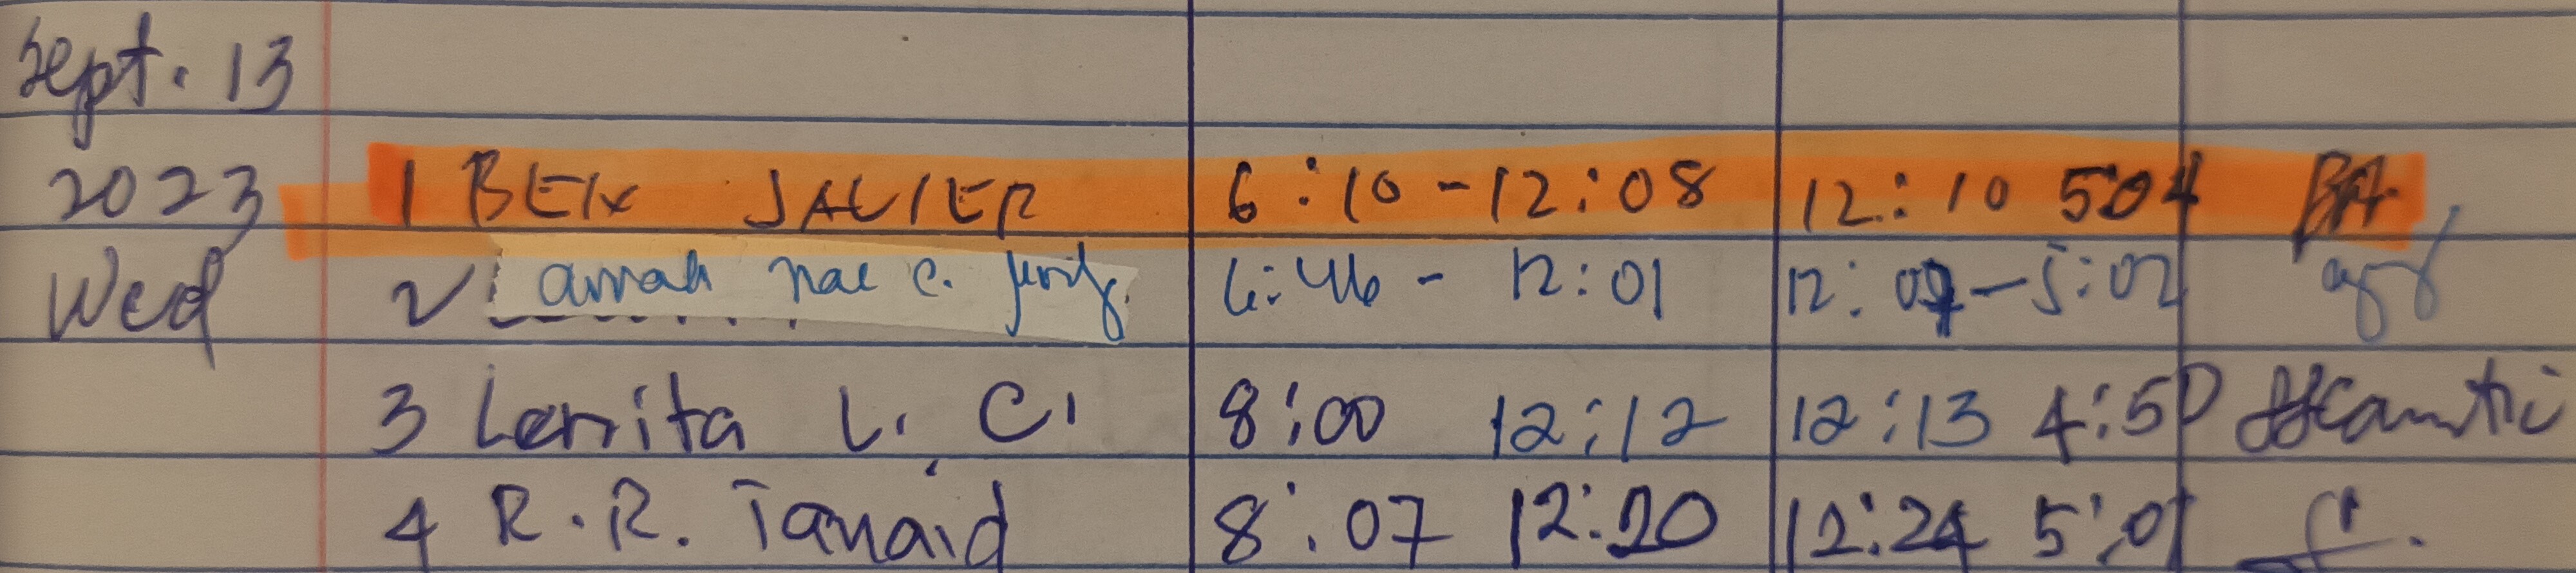 Sept. 13
2023 1 BEN JAVIER 6:10 - 12:08 12:10 504
Wed 2 nae c. 6:46 - 12:01 12: - 5:02
3 Lenita L. C. 8:00 12:12 12:13 4:50
4 R.R. Tanaid 8:07 12:20 12:24 5:01